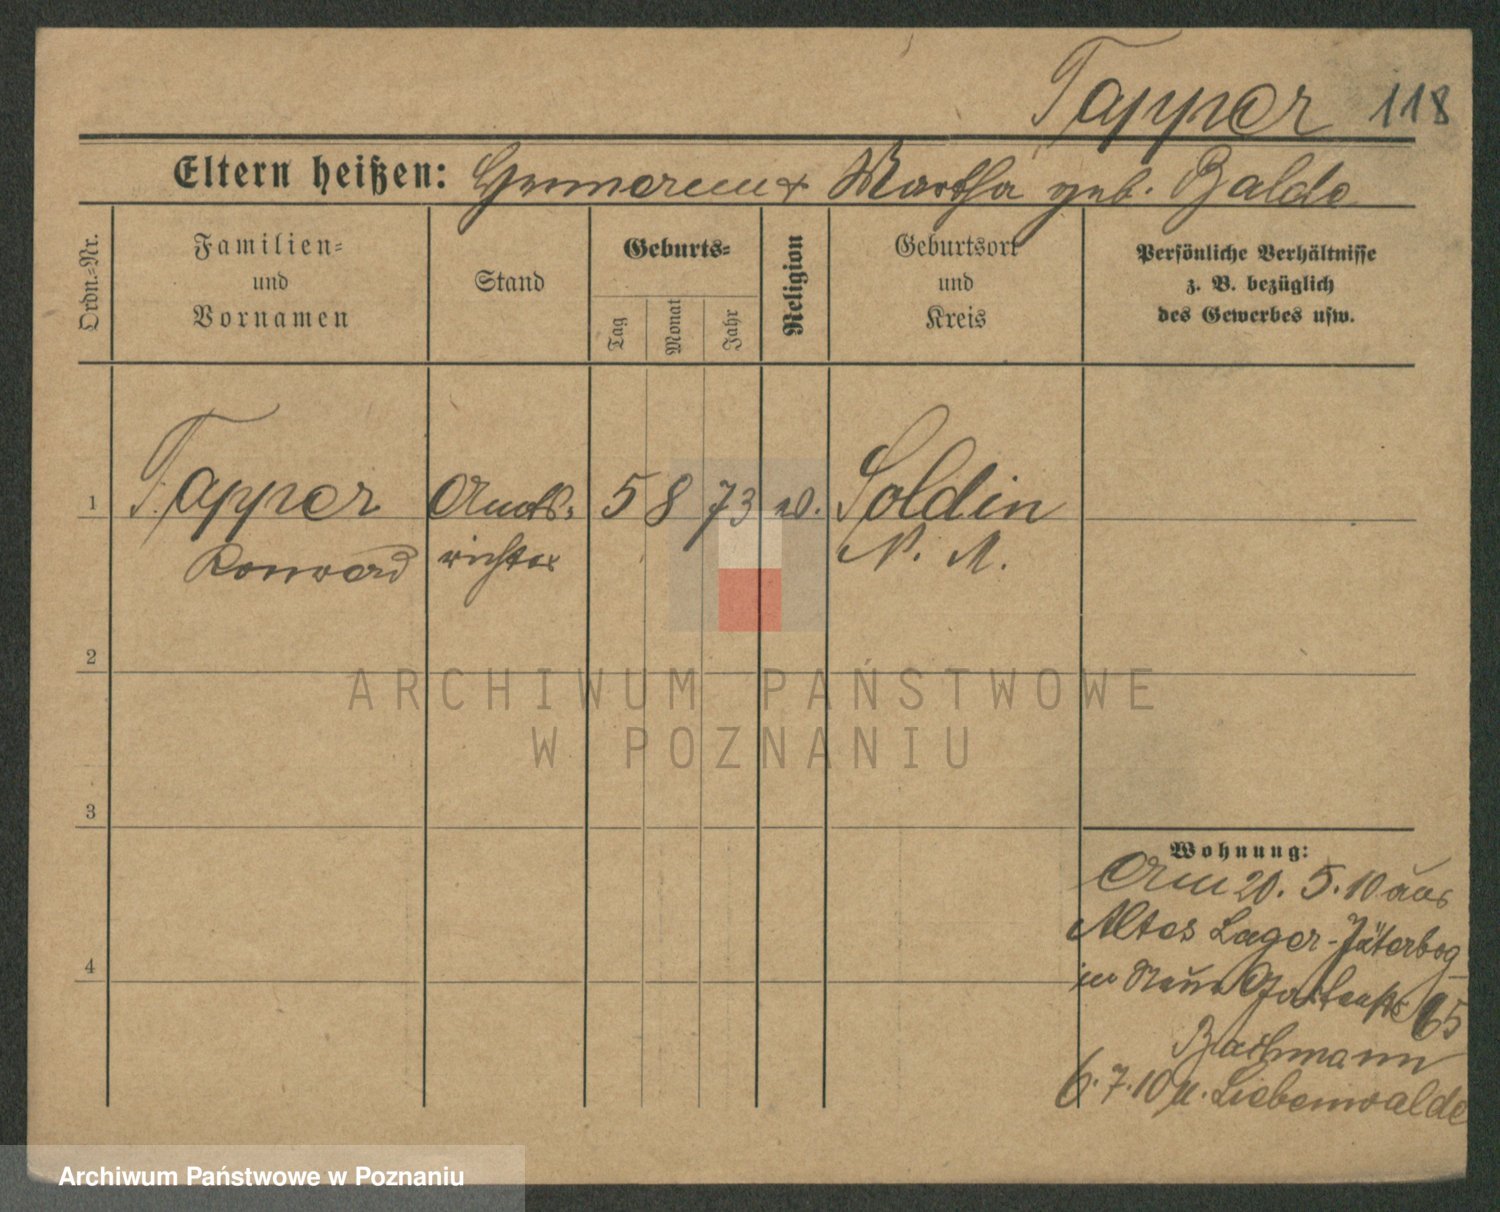 Tapper 118
Eltern heißen: Martha geb. Balde
Ordn.=Nr.
Familien=
und
Vornamen
Stand
Geburts=
Tag
Monat
Jahr
Religion
Geburtsort
und
Kreis
Persönliche Verhältnisse
z. B. bezüglich
des Gewerbes usw.
1 Tapper Amts- 5 8 73 Soldin
Konrad richter N. M.
2
3
4
Wohnung:
Am 20. 5. 10 aus
Altes Lager-Jüterbog
in Neue Gartenstr 65
Bachmann
6. 7. 10 n. Liebenwalde
ARCHIWUM PAŃSTWOWE
W POZNANIU
Archiwum Państwowe w Poznaniu